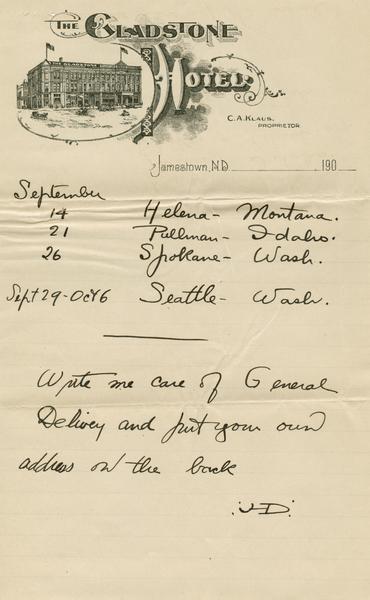 THE GLADSTONE
THE GLADSTONE
HOTEL
C.A. KLAUS,
PROPRIETOR
Jamestown, N.D. 190
September
14 Helena - Montana.
21 Pullman - Idaho.
26 Spokane - Wash.
Sept 29 - Oct 6 Seattle - Wash.
Write me care of General
Delivey and put your own
address on the back
JD